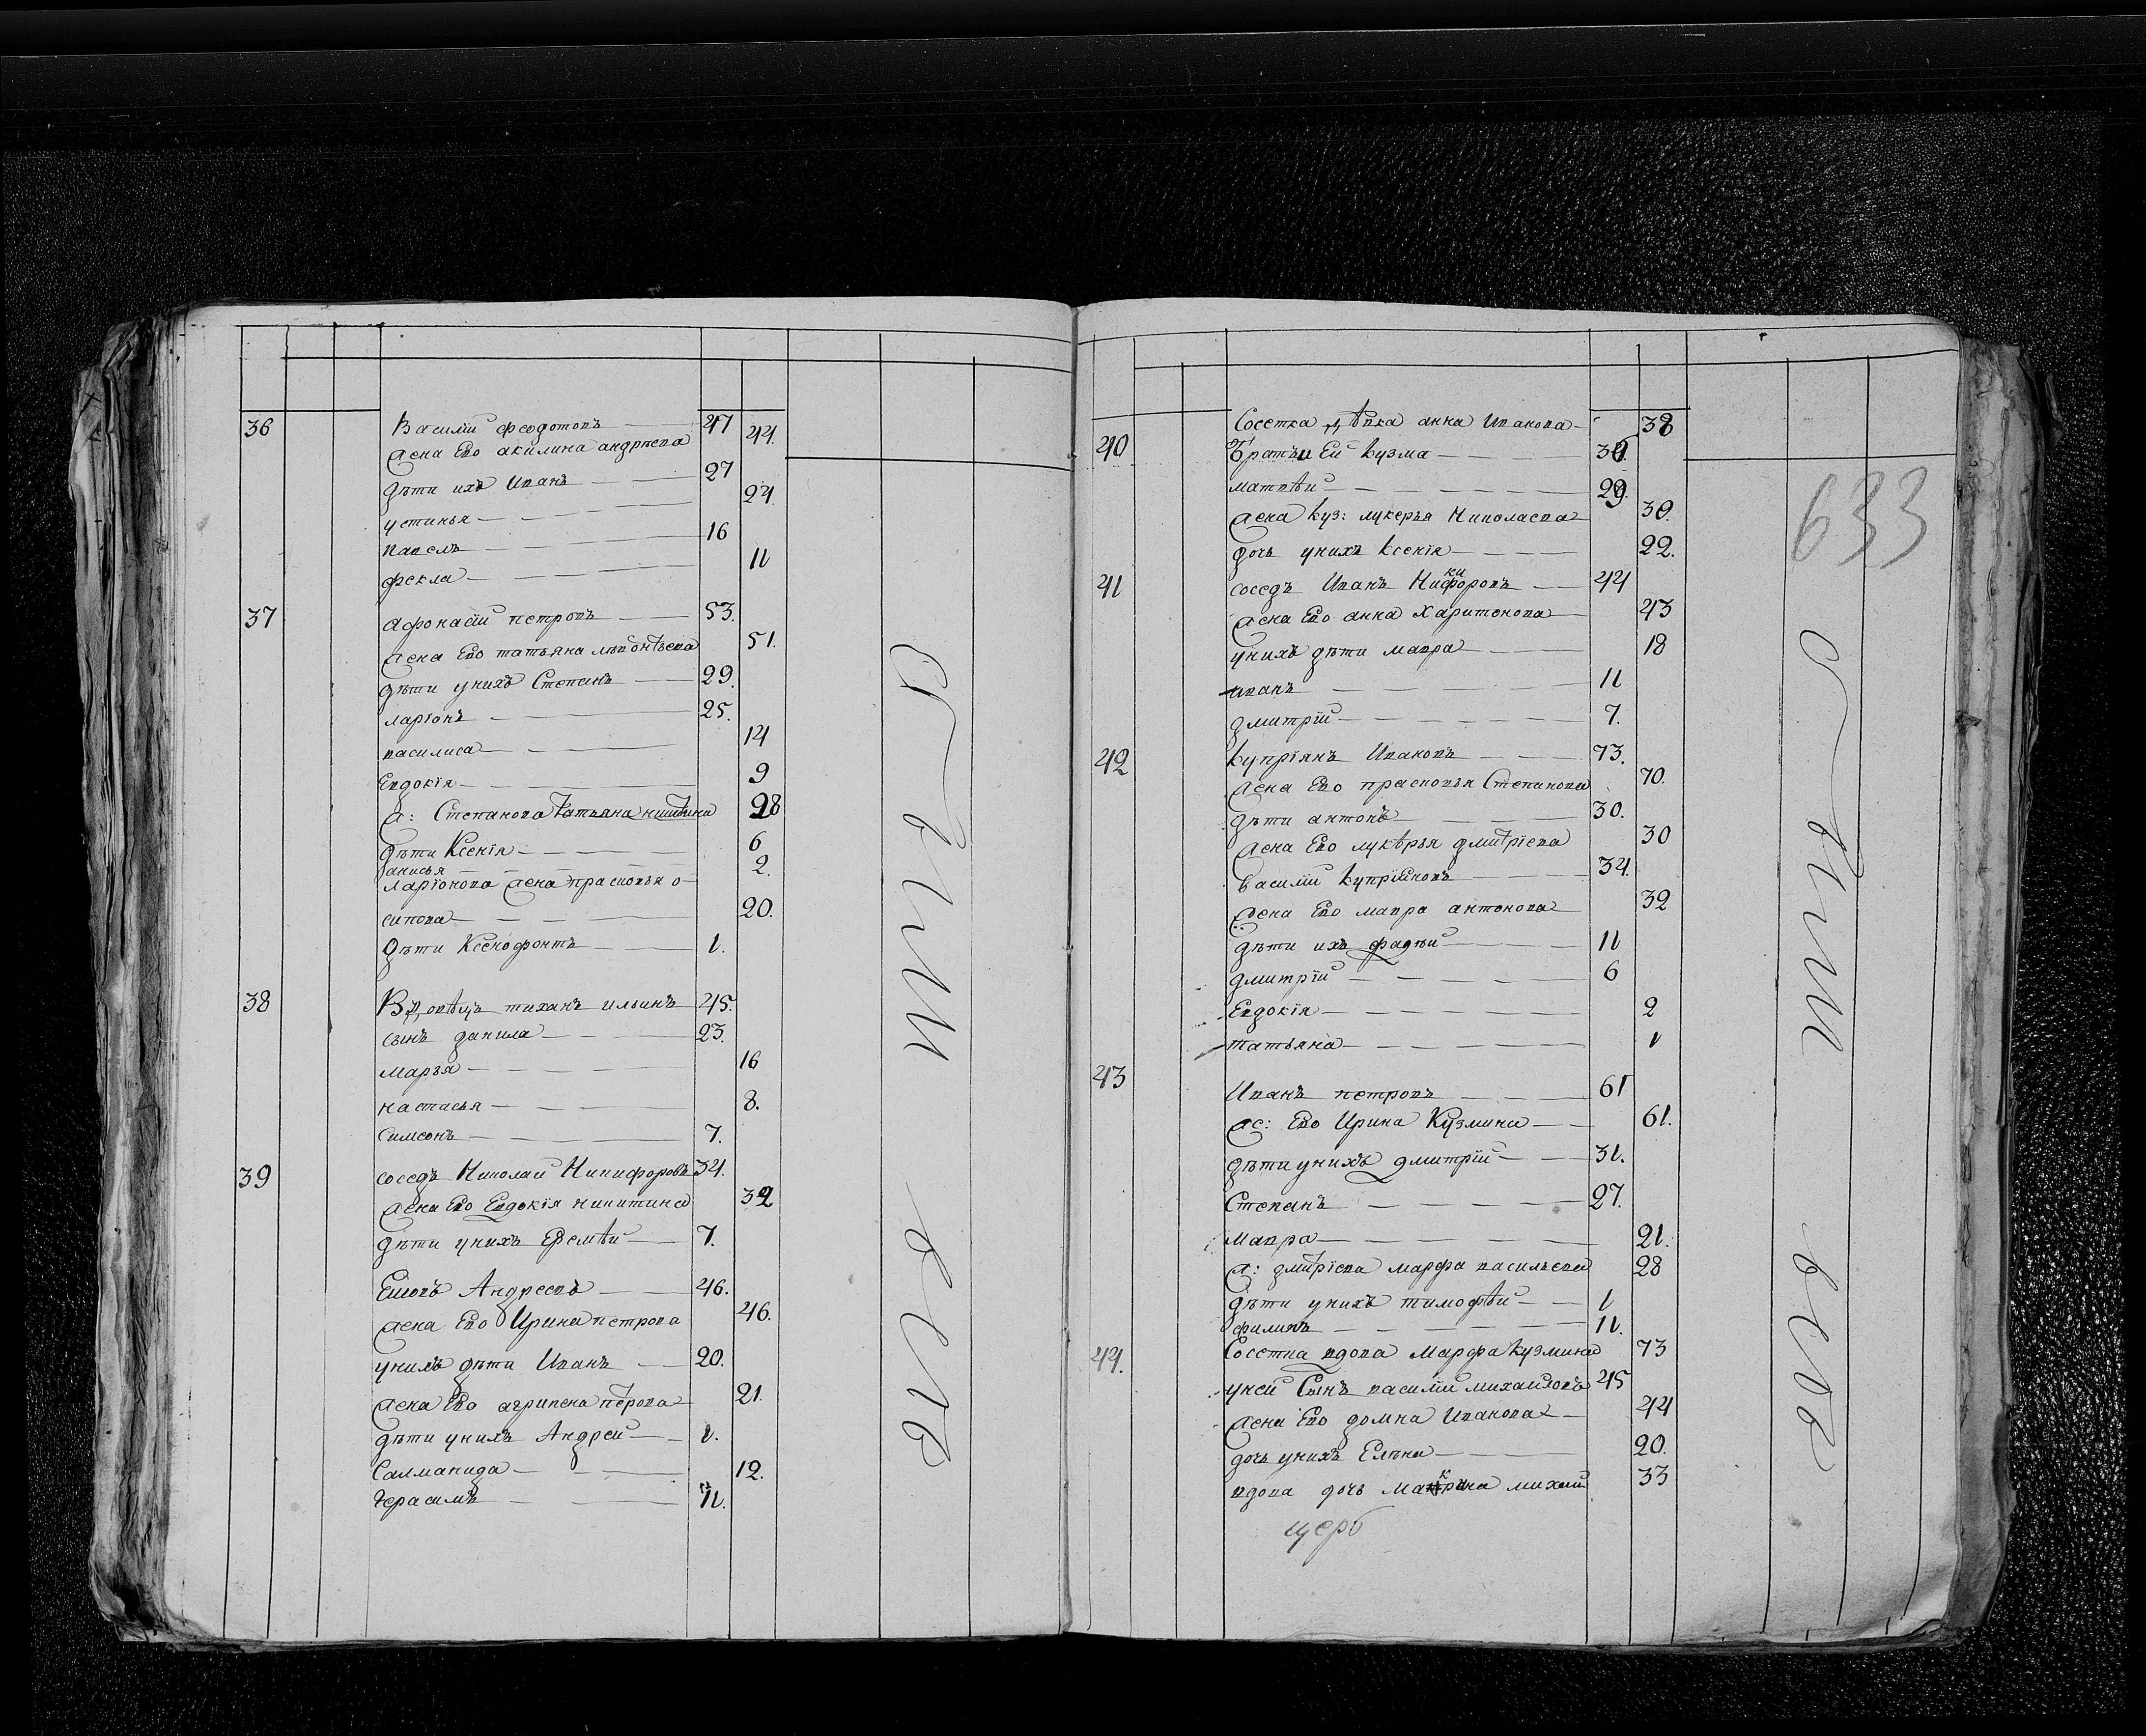 36 Василiй федотовъ 47
жена Ево акилина андреева 44.
дѣти ихъ Иванъ 27
устинья 24.
павелъ 16
фекла 11
37 афонасiй петровъ 53.
жена Ево татьяна 51.
дѣти унихъ Степанъ 29.
ларiонъ 25.
василиса 14
Евдокiя 9
ж: Степанова татьяна никитина 28
дѣти Ксенiя 6
анисья 2.
ларiонова жена прасковья о-
сипова 20.
дѣти Ксенофонтъ 1.
38 Вдовѣцъ тиханъ ильинъ 45.
сынъ данила 23.
марья 16
настасья 8.
Симеонъ 7.
39 соседъ Николай Никифоровъ 34.
жена Ево Евдокiя никитина 32
дѣти унихъ Еремѣй 7.
Андреевъ 46.
жена Ево Ирина петрова 46.
унихъ дѣти Иванъ 20.
жена Ево агрипена петрова 21.
дѣти унихъ Андрей 1.
Салманида 12.
Герасимъ
О нихъ
Соседка дѣвка анна Иванова 38
40 братьи Ей кузма
матвѣй 29.
жена куз: лукерья Николаева 30.
дочь унихъ ксенiя 22.
41 соседъ Иванъ Никифоровъ 44
жена Ево анна Харитонова 43
унихъ дѣти мавра 18
иванъ 11
дмитрiй 7.
42 купрiянъ Ивановъ 73.
жена Ево прасковья Степанова 70.
дѣти антонъ 30.
жена Ево лукѣрья дмитрiева 30
Василiй купрiяновъ 34.
жена Ево мавра антонова 32
дѣти ихъ фадѣй 11
дмитрiй 6
Евдокiя 2
татьяна 1
43 Иванъ петровъ 61
ж: Ево Ирина Кузмина 61.
дѣти унихъ дмитрiй 31.
Степанъ 27.
мавра 21.
ж: дмитрiева марфа васильева 28
дѣти унихъ тимофѣй 1
филипъ 11.
44. Соседка вдова Марфа кузмина 73
уней Сынъ василiй михайловъ 45
жена Ево домна Иванова 44
дочь унихъ Елѣна 20.
вдова дочь Макрина михай 33
церб
633